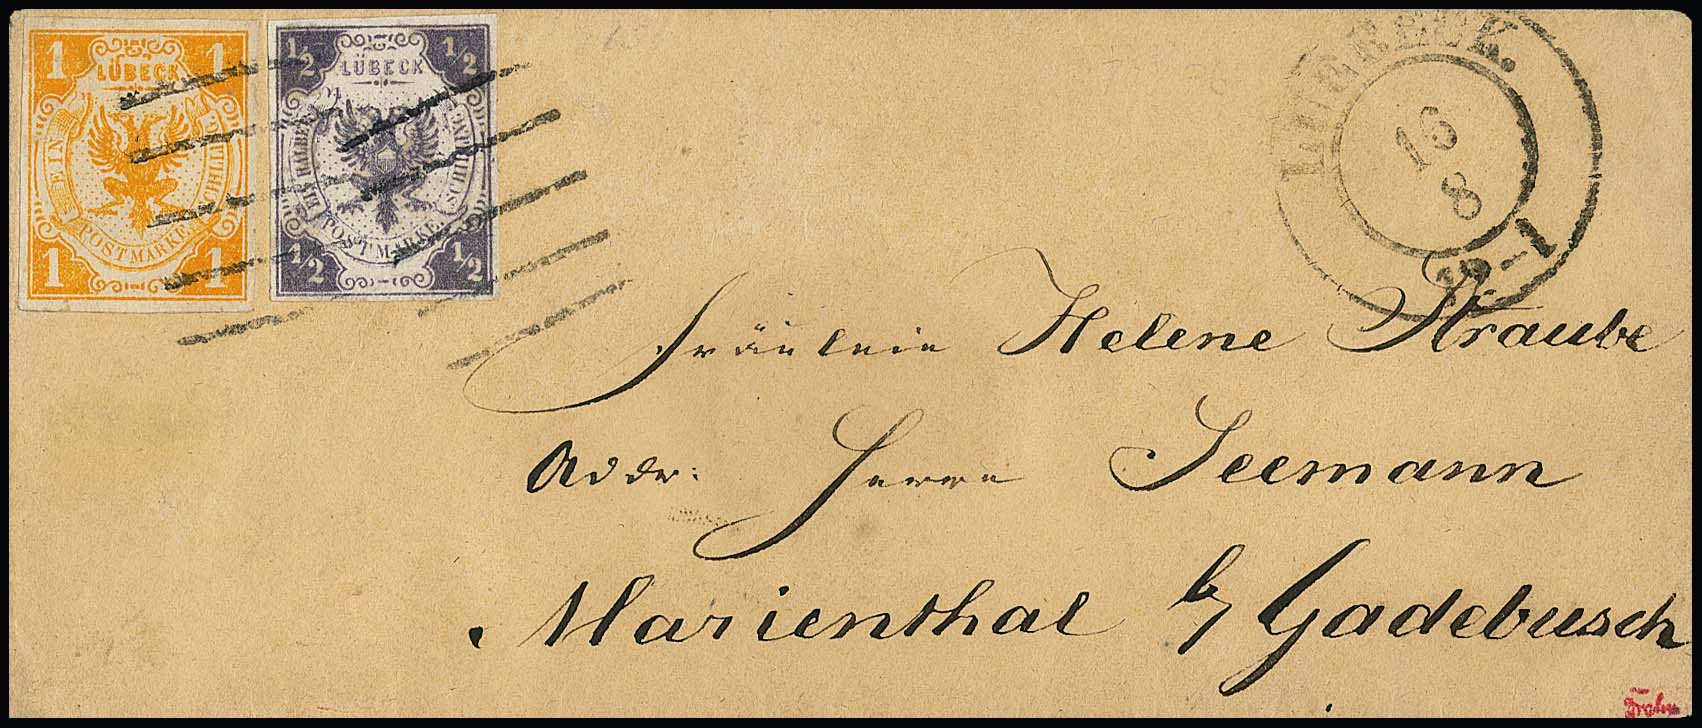 1 1
LÜBECK
EIN SCHILLING
POSTMARKE
1 1
1/2 1/2
LÜBECK
EIN HALBER SCHILLING
POSTMARKE
1/2 1/2
LUEBECK.
16
8
12-1
Fräulein Helene Straube
Addr: Herrn Seemann
Marienthal b/ Gadebusch